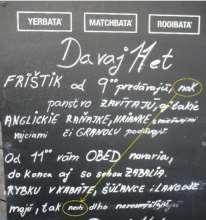 YERBATA' MATCHBATA' ROOIBATA'
Davaj Het
FRIŠTIK od 9°° predávajú, nak
panstvo ZAVÍTAJÚ, aj takie
ANGLICKIE RAŇAJKE, HRIANKE
vajciami či GRANOLU
Od 11°° vám OBED navaria,
do konca aj so sebou ZABALIA.
RYBKU V KABÁTE, ŠÚĽANCE I LANGOŠE
majú, tak nech dlho